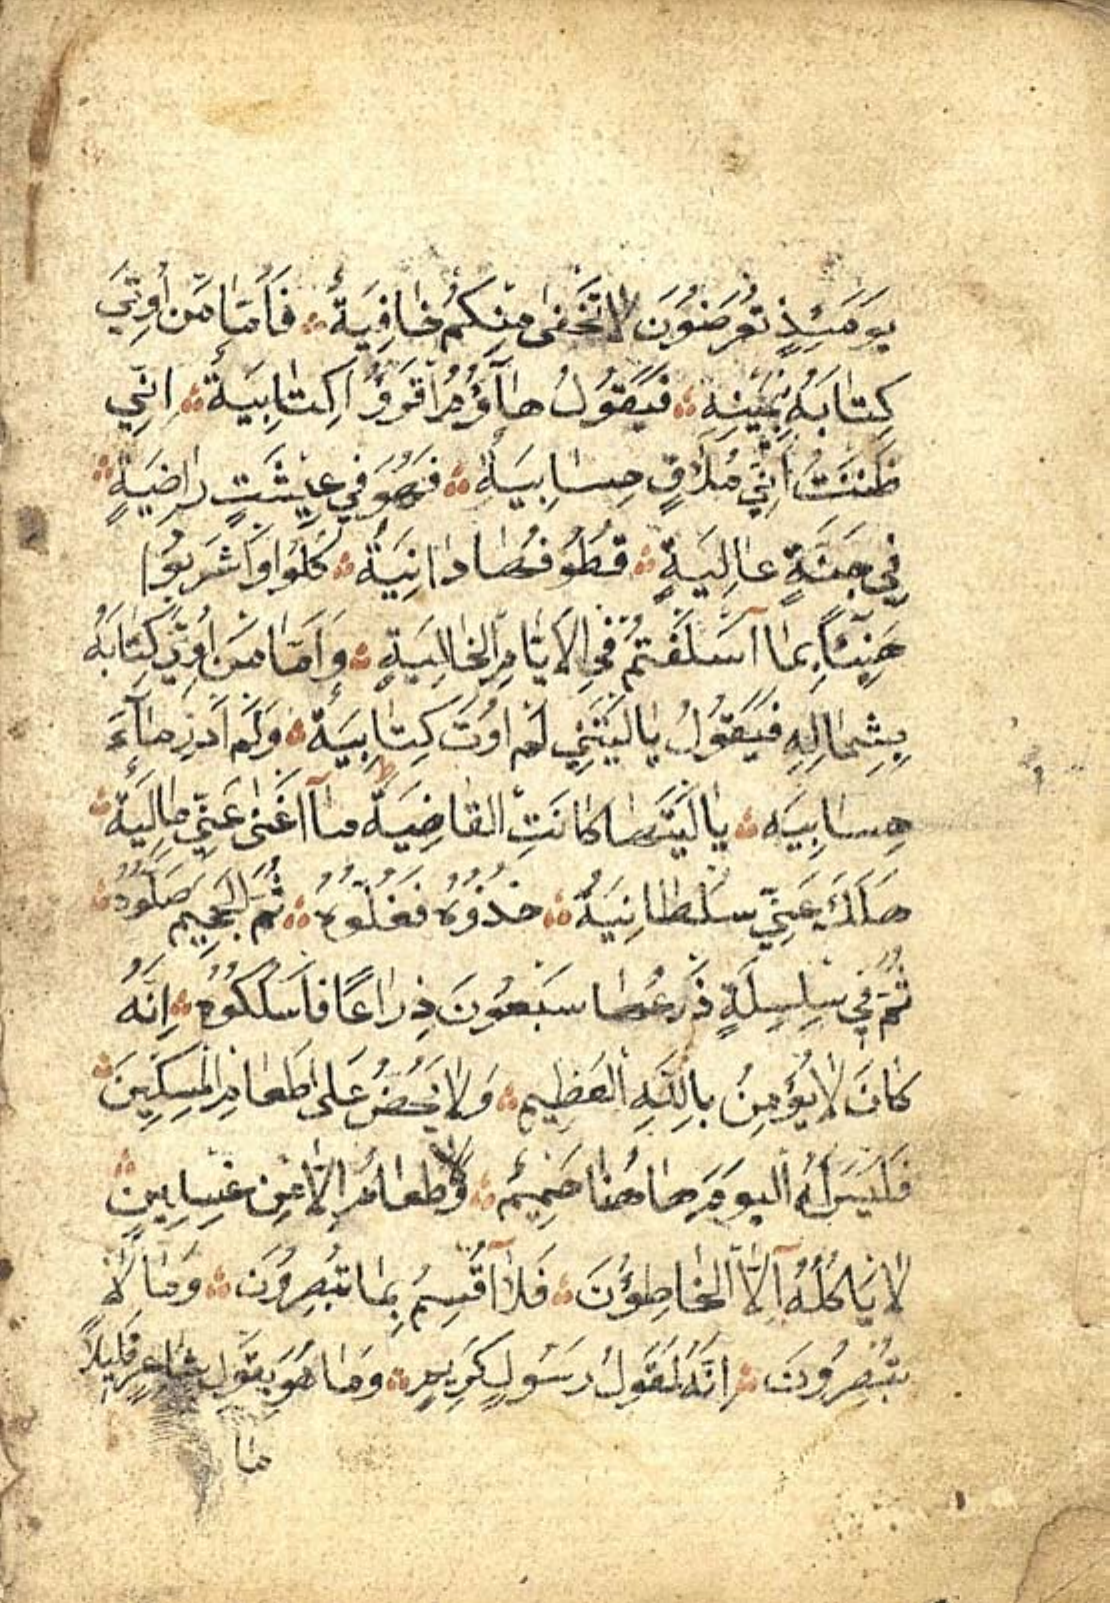 يَوْمَئِذٍ تُعْرَضُونَ لَا تَخْفَىٰ مِنْكُمْ خَافِيَةٌ ۞ فَأَمَّا مَنْ أُوتِيَ
كِتَابَهُ بِيَمِينِهِ ۞ فَيَقُولُ هَآؤُمُ اقْرَؤُا كِتَابِيَهْ ۞ اِنِّي
ظَنَنْتُ اَنِّي مُلَاقٍ حِسَابِيَهْ ۞ فَهُوَ فِي عِيشَتٍ رَاضِيَةٍ ۞
فِي جَنَّةٍ عَالِيَةٍ ۞ قُطُوفُهَا دَانِيَةٌ ۞ كُلُوا وَاشْرَبُوا
هَنِيئًا بِمَا آسْلَفْتُمْ فِي الْاَيَّامِ الْخَالِيَةِ ۞ وَاَمَّا مَنْ اُوتِيَ كِتَابَهُ
بِشِمَالِهِ فَيَقُولُ يَالَيْتَنِي لَمْ اُوتَ كِتَابِيَهْ ۞ وَلَمْ اَدْرِ مَا
حِسَابِيَه ۞ يَالَيْتَهَا كَانَتِ الْقَاضِيَةَ مَآ اَغْنَىٰ عَنِّي مَالِيَهْ ۞
هَلَكَ عَنِّي سُلْطَانِيَهْ ۞ خُذُوهُ فَغُلُّوهُ ۞ ثُمَّ الْجَحِيمَ صَلُّوهُ ۞
ثُمَّ فِي سِلْسِلَةٍ ذَرْعُهَا سَبْعُونَ ذِرَاعًا فَاسْلُكُوهُ ۞ اِنَّهُ
كَانَ لَا يُؤْمِنُ بِاللّٰهِ الْعَظِيمِ ۞ وَلَا يَحُضُّ عَلَىٰ طَعَامِ الْمِسْكِينِ ۞
فَلَيْسَ لَهُ الْيَوْمَ هَاهُنَا حَمِيمٌ ۞ وَلَا طَعَامٌ اِلَّا مِنْ غِسْلِينٍ ۞
لَا يَاكُلُهُ آلَّا الْخَاطِؤُنَ ۞ فَلَآ اُقْسِمُ بِمَا تُبْصِرُونَ ۞ وَمَا لَا
تُبْصِرُونَ ۞ اِنَّهُ لَقَوْلُ رَسُولٍ كَرِيمٍ ۞ وَمَا هُوَ بِقَوْلِ شَاعِرٍ قَلِيلًا
مَا